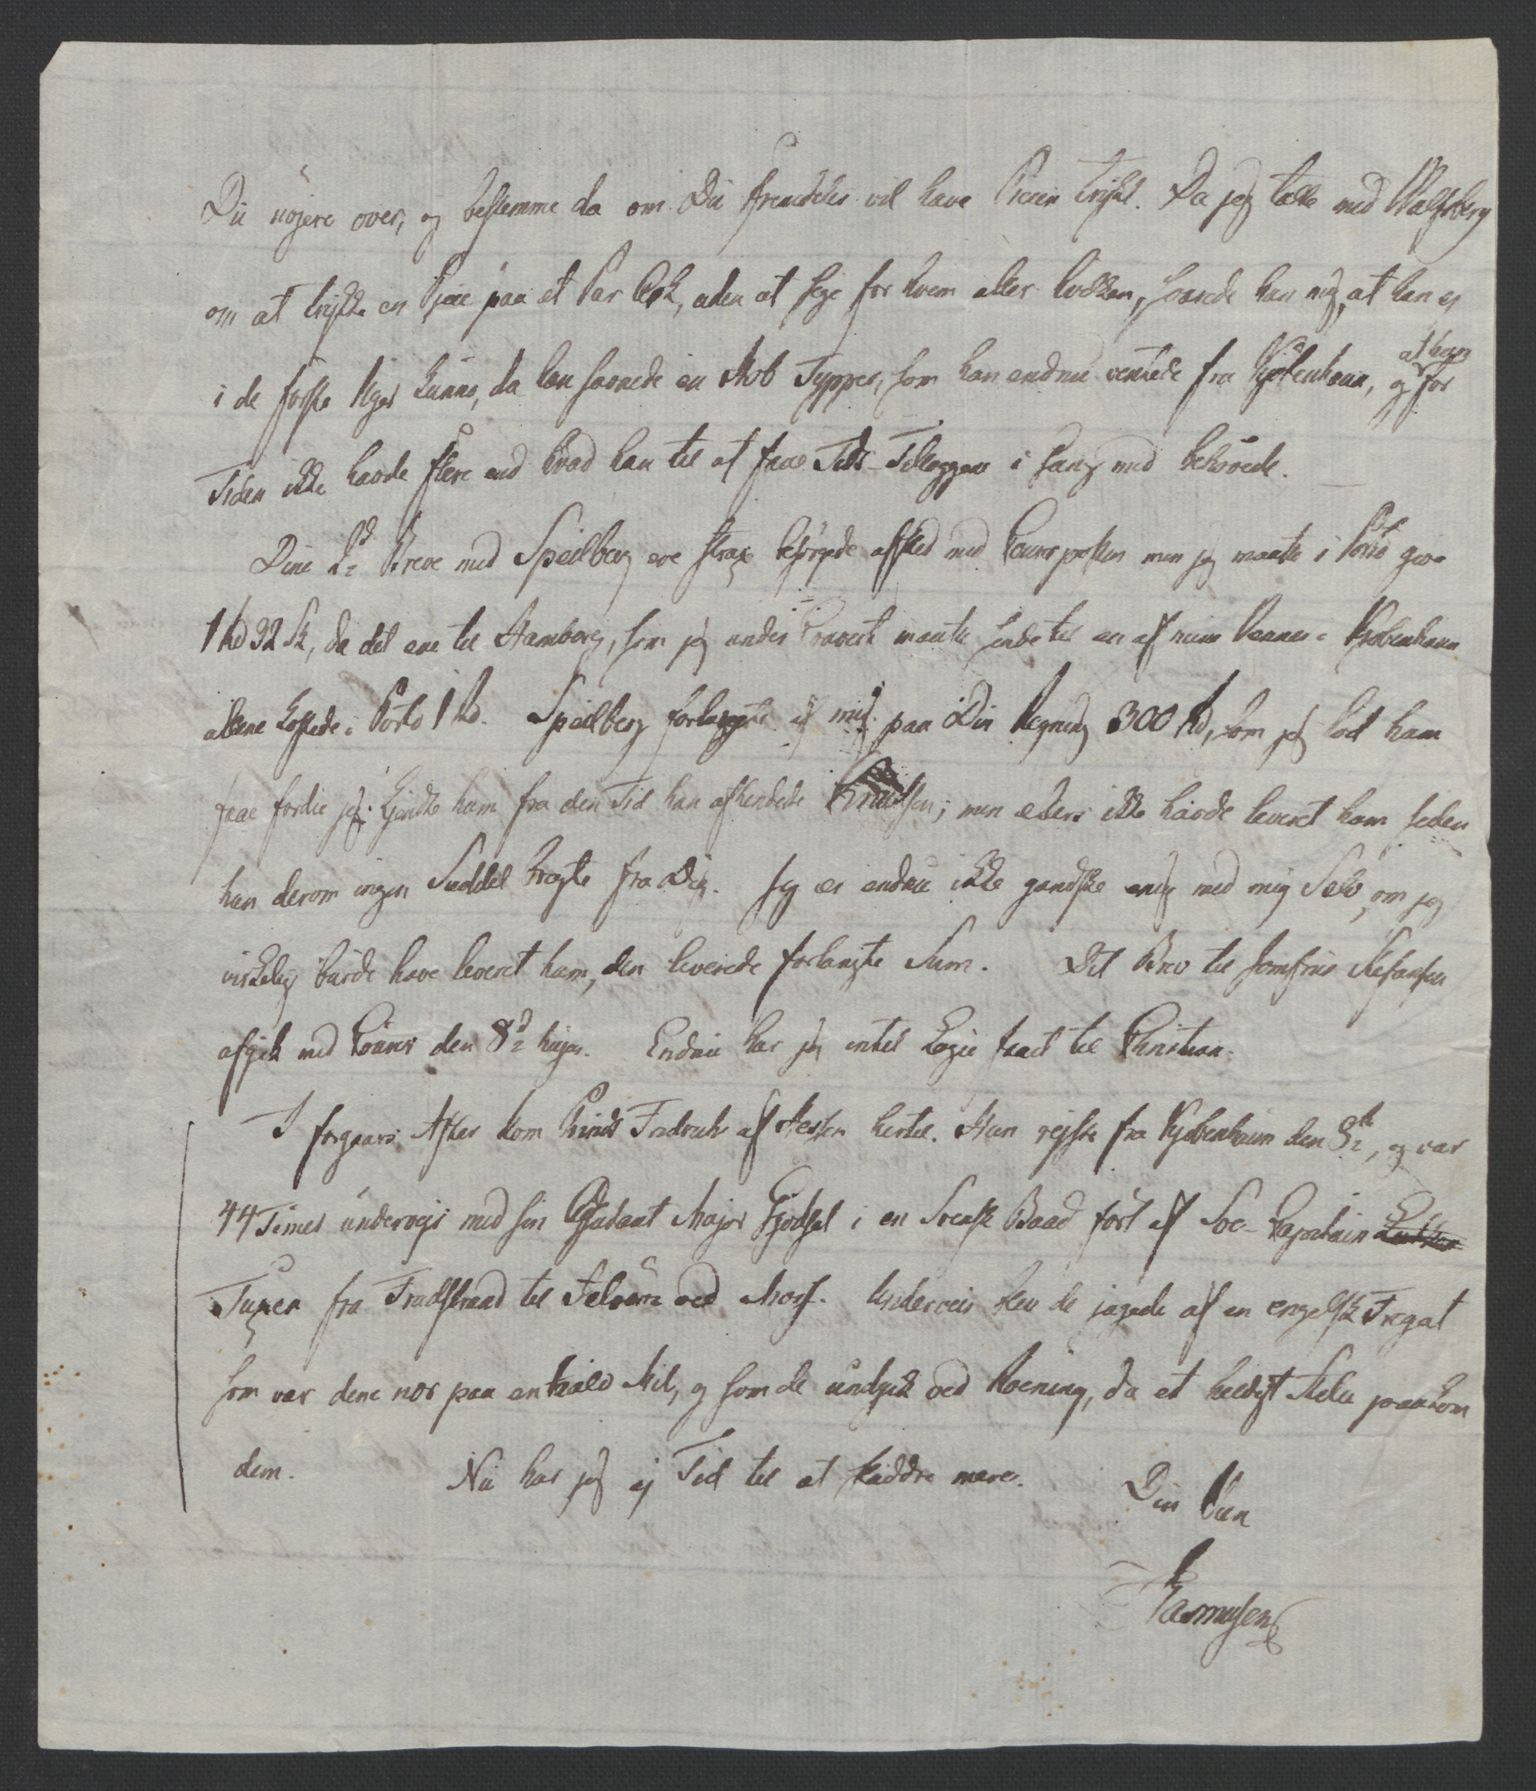 Du nöjere over, og bestemme da om Du fremdeles vil have Piecen trykt. Da jeg talte med Wulfsberg
om at trykke en Piece paa et Par Ark, uden at sige for hvem eller hvilken, svarede han mig, at han ej
i de første Uger kunne, da han savnede en Hob Typper, som han endnu ventede fra Kjøbenhavn, og at han for
Tiden ikke havde flere end hvad han til at faae Tids-Tillæggene i Gang med behövede.
Dine 2de Breve med Spidberg ere strax besörgede afsted med Couurposten men jeg maatte i Porto give
1 Rd 32 Sk, da det ene til Hamborg, som jeg under Couvert maatte sende til en af mine Venner i Kjøbenhavn
allene kostede i Porto 1 Rd. Spidberg forlangte af mig paa Din Regning 300 Rd, som jeg lod ham
faae fordie jeg kjendte ham fra den Tid han afhentede Knudsen; men ellers ikke havde leveret ham siden
han derom ingen Seddel bragte fra Dig. Jeg er endnu ikke gandske enig med mig Selv, om jeg
virkelig burde have leveret ham, den leverede forlangte Sum. Dit Brev til Jomfrue Stefansen
afgik med Couurs den 8de hujus. Endnu har jeg intet Logie faaet til Christian.
I forgaars Aftes kom Prinds Fredrich af Hessen hertil. Han rejste fra Kjøbenhavn den 8de, og var
44 Timer underveis med sin Adjudant Major Hjödsel i en Svensk Baad fört af Söe-Capitain
Tuxen fra Fladstrand til Jelöen ved Moss. Underveis blev de jagede af en engelsk Fregat
som var dem nær paa en halv Mil, og som de undgik ved Roening, da et heldigt Stille paakom
dem. Nu har jeg ej Tid til at sladdre mere. Din Ven
Rasmusen